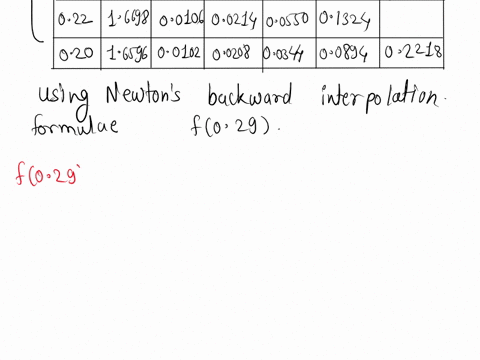 0.22 1.6698 0.0106 0.0214 0.0550 0.1324
0.20 1.6596 0.0102 0.0208 0.0344 0.0894 0.2218
using Newton's backward interpolation.
formulae f(0.29).
f(0.29)